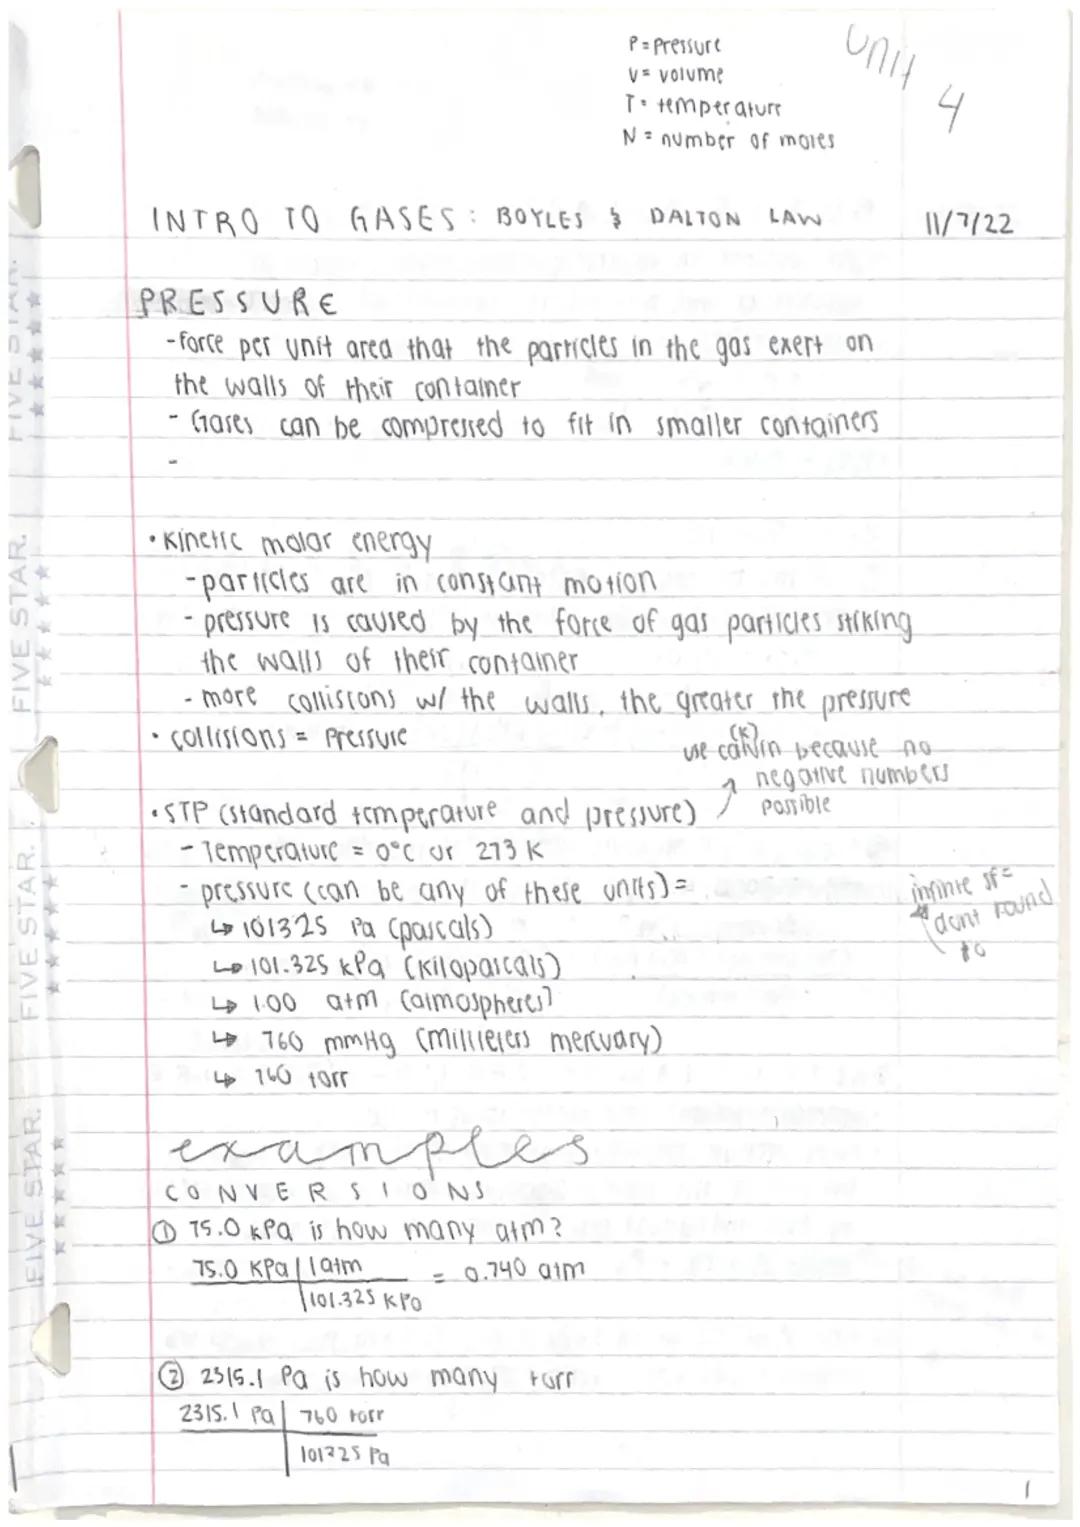 P = Pressure
V = volume
T = temperature
N = number of moles
Unit 4
INTRO TO GASES: BOYLES & DALTON LAW 11/7/22
PRESSURE
- Force per unit area that the particles in the gas exert on
the walls of their container
- Gases can be compressed to fit in smaller containers
-
• Kinetic molar energy
- particles are in constant motion
- pressure is caused by the force of gas particles striking
the walls of their container
- more collisions w/ the walls, the greater the pressure
• collisions = Pressure
(K)
use because no
negative numbers
possible
• STP (standard temperature and pressure)
- Temperature = 0°C or 273 K
- pressure (can be any of these units) =
↳ 101325 Pa (pascals)
↳ 101.325 kPa (kilopascals)
↳ 1.00 atm (atmospheres)
↳ 760 mmHg (millileters mercuary)
↳ 760 torr
infinite sf =
dont round
to
examples
CONVERSIONS
① 75.0 kPa is how many atm?
75.0 KPa | 1atm = 0.740 atm
101.325 KPa
② 2315.1 Pa is how many torr
2315.1 Pa | 760 torr
101325 Pa
1
FIVE STAR.
FIVE STAR.
FIVE STAR.
FIVE STAR.